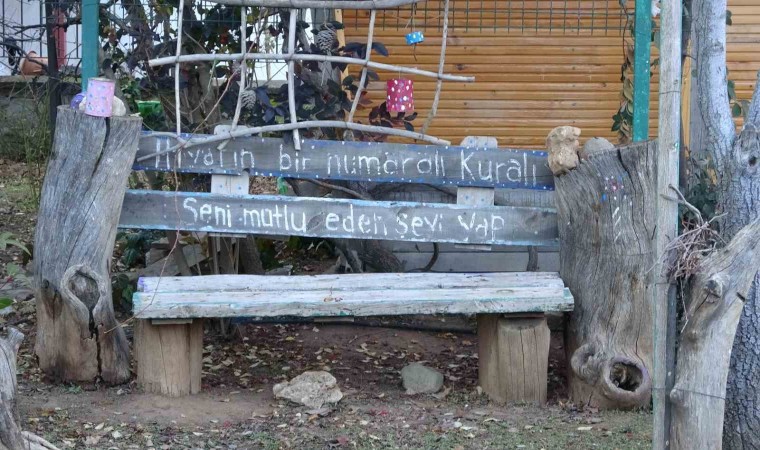 Hayatın bir numaralı Kuralı
Seni mutlu eden şeyi yap